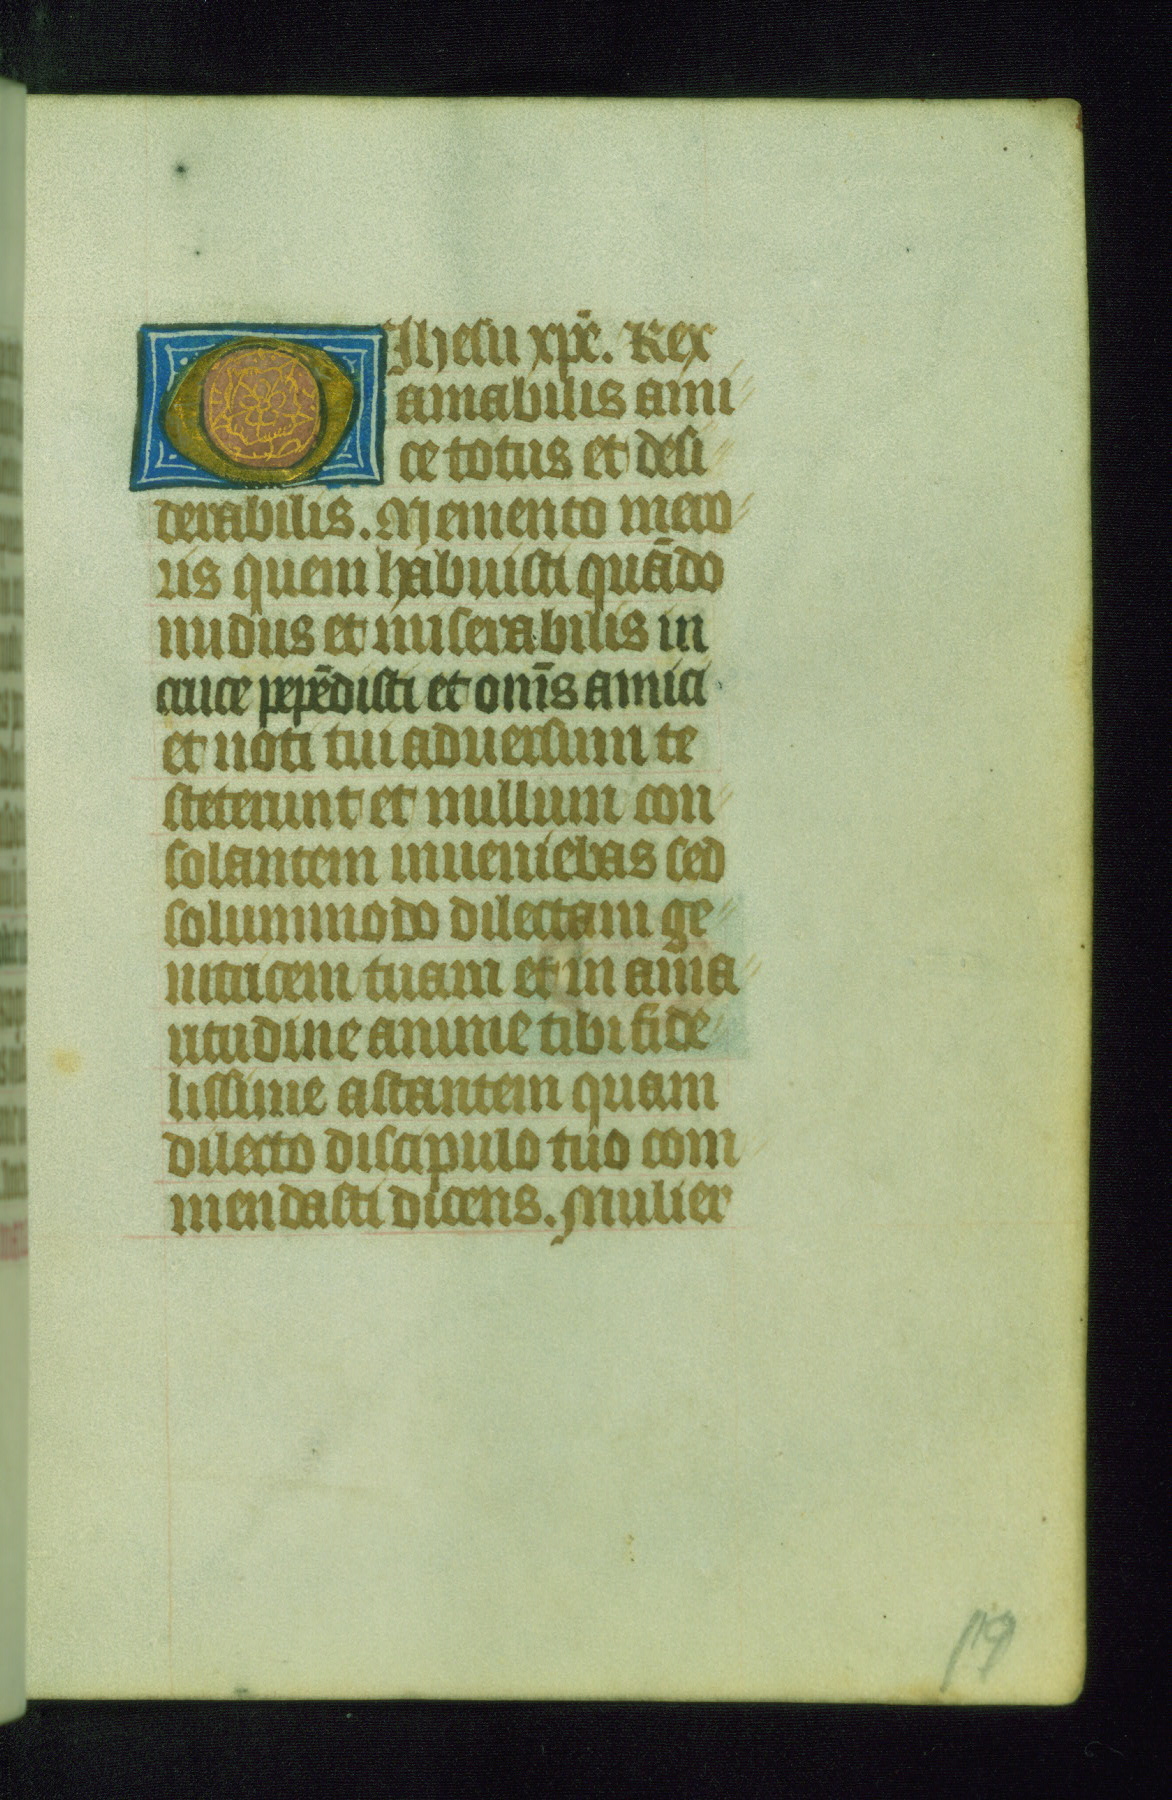 O Jhesu xp̄e. Rex
amabilis ami
ce totus et desi
derabilis. Memento mero
ris quem habuisti quādo
nudus et miserabilis in
cruce pepēdisti et om̄s amici
et noti tui aduersum te
steterunt et nullum con
solantem inueniebas sed
solummodo dilectam ge
nitricem tuam et in ama
ritudine anime tibi fide
lissime astantem quam
dilecto discipulo tuo com
mendasti dicens. Mulier